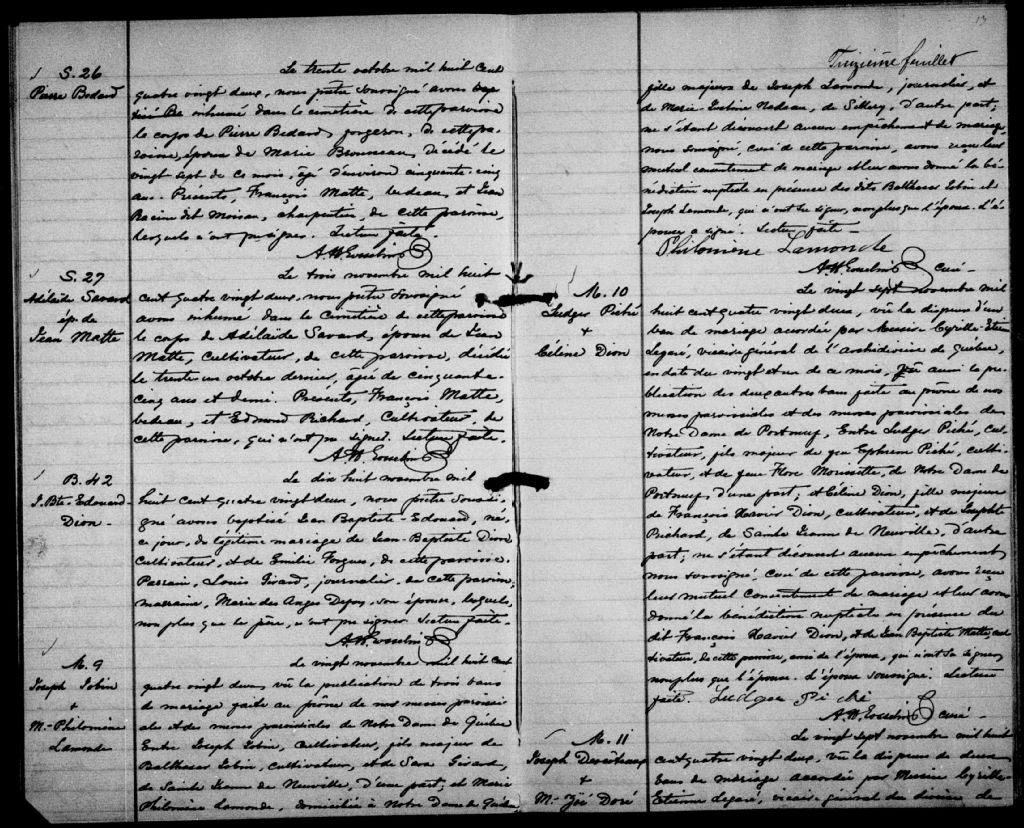 S. 26
Pierre Bedard
Le trente octobre mil huit cent
quatre vingt deux, nous prêtre soussigné avons
inhumé dans le cimetière de cette paroisse
le corps de Pierre Bedard, forgeron, de cette pa-
roisse, époux de Marie Brousseau, décédé le
vingt sept de ce mois, âgé d'environ cinquante-cinq
ans. Présents, François Matte, bedeau, et Jean
Racine dit Moisan, charpentier, de cette paroisse,
lesquels n'ont pu signer. Lecture faite.
A.H. Gosselin
S. 27
Adélaïde Savard
ép. de
Jean Matte
Le trois novembre mil huit
cent quatre vingt deux, nous prêtre soussigné
avons inhumé dans le cimetière de cette paroisse
le corps de Adélaïde Savard, épouse de Jean
Matte, cultivateur, de cette paroisse, décédée
le trente un octobre dernier, âgée de cinquante-
cinq ans et demi. Présents, François Matte,
bedeau, et Edmond Richard, cultivateur, de
cette paroisse, qui n'ont pu signer. Lecture faite.
A.H. Gosselin
B. 42
J. Bte-Edouard
Dion -
Le dix huit novembre mil
huit cent quatre vingt deux, nous prêtre soussi-
gné avons baptisé Jean Baptiste-Edouard, né,
ce jour, du légitime mariage de Jean-Baptiste Dion
cultivateur, et de Emilie Forgues, de cette paroisse.
Parrain, Louis Girard, journalier, de cette paroisse,
marraine, Marie des Anges son épouse, lesquels,
non plus que le père, n'ont pu signer. Lecture faite.
A.H. Gosselin
M. 9
Joseph Jobin
+
M.-Philomène
Lamonde
Le vingt novembre mil huit cent
quatre vingt deux, vû la publication de trois bans
de mariage faite au prône de nos messes paroissi-
ales et des messes paroissiales de Notre Dame de Québec
Entre Joseph Jobin, cultivateur, fils majeur de
Balthasar Jobin, cultivateur, et de Sara Girard,
de Sainte Jeanne de Neuville, d'une part; et Marie
Philomène Lamonde, domiciliée à Notre Dame de Québec
13
Treizième feuillet
fille majeure de Joseph Lamonde, journalier, et
de Marie Nadeau, de Sillery, d'autre part;
ne s'étant découvert aucun empêchement de mariage,
nous soussigné, curé de cette paroisse, avons reçu leur
mutuel consentement de mariage et leur avons donné la bé-
nédiction nuptiale en présence des dits Balthasar Jobin et
Joseph Lamonde, qui n'ont su signer, non plus que l'époux. L'é-
pouse a signé. Lecture faite -
Philomène Lamonde
A.H. Gosselin curé -
M. 10
Ludger Piché
+
Céline Dion
Le vingt sept novembre mil
huit cent quatre vingt deux, vû la dispense d'un
ban de mariage accordée par Messire Cyrille Etien
Legaré, vicaire général de l'archidiocèse de Québec,
en date du vingt et un de ce mois, aussi la pu-
blication des deux autres bans faite au prône de nos
messes paroissiales et des messes paroissiales de
Notre Dame de Portneuf, Entre Ludger Piché, cul-
tivateur, fils majeur de feu Ephrem Piché, culti-
vateur, et de feue Flore Morissette, de Notre Dame de
Portneuf, d'une part; et Céline Dion, fille majeure
de François Xavier Dion, cultivateur, et de Josephte
Richard, de Sainte Jeanne de Neuville, d'autre
part; ne s'étant découvert aucun empêchement,
nous soussigné, curé de cette paroisse, avons reçu
leur mutuel consentement de mariage et leur avons
donné la bénédiction nuptiale en présence du
dit François Xavier Dion, et de Jean Baptiste Matte, cul-
tivateur, de cette paroisse, ami de l'époux, qui n'ont su signer
non plus que l'épouse. L'époux soussigné. Lecture
faite. Ludger Piché
A.H. Gosselin curé -
M. 11
Joseph
+
M. Doré
Le vingt sept novembre mil huit
cent quatre vingt deux, vû la dispense de deux
bans de mariage accordée par Messire Cyrille
Etienne Legaré, vicaire général du diocèse de